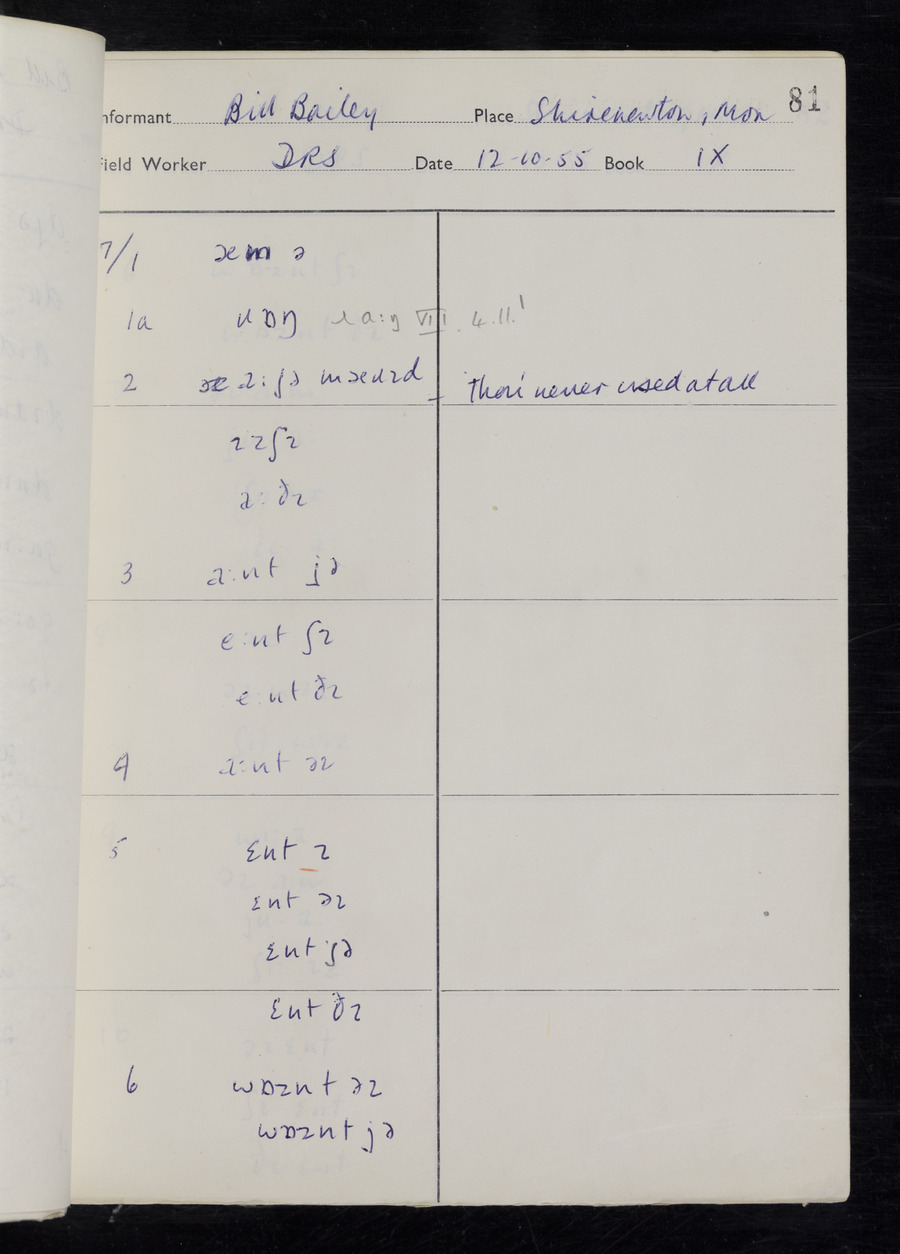 81
Informant Bill Bailey Place Shirenewton, Mon
Field Worker DRS Date 12-10-55 Book IX
7/1 æm ə
1a ɹɒŋ ɹɑ:ŋ VIII.4.11.'
2 ɪ: jə mæɹɪd
'thou' never used at all
ɪz ʃɪ
a: ðɪ
3 a:nt jə
e:nt ʃɪ
e:nt ðɪ
4 a:nt əɪ
5 ɛnt ɪ
ɛnt əɪ
ɛnt jə
ɛnt ðɪ
6 wɒznt əɪ
wɒznt jə